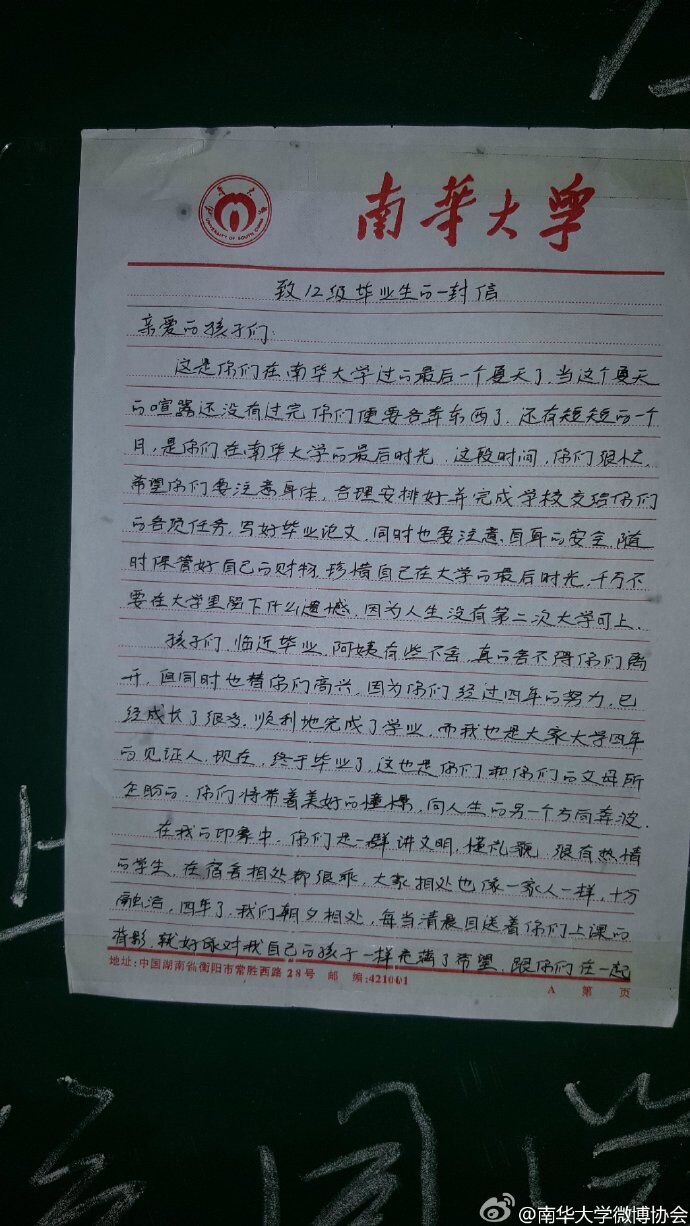 UNIVERSITY OF SOUTH CHINA
南華大學
致12级毕业生的一封信
亲爱的孩子们:
这是你们在南华大学过的最后一个夏天了,当这个夏天
的喧嚣还没有过完你们便要各奔东西了,还有短短的一个
月,是你们在南华大学的最后时光,这段时间,你们很忙,
希望你们要注意身体,合理安排好并完成学校交给你们
的各项任务,写好毕业论文,同时也要注意自身的安全,随
时保管好自己的财物,珍惜自己在大学的最后时光,千万不
要在大学里留下什么遗憾,因为人生没有第二次大学可上.
孩子们,临近毕业,阿姨有些不舍,真的舍不得你们离
开,但同时也替你们高兴,因为你们经过四年的努力,已
经成长了很多,顺利地完成了学业,而我也是大家大学四年
的见证人,现在,终于毕业了,这也是你们和你们的父母所
企盼的,你们将带着美好的憧憬,向人生的另一个方向奔波.
在我的印象中,你们是一群讲文明,懂礼貌,很有热情
的学生,在宿舍相处都很乖,大家相处也像一家人一样,十分
融洽,四年了,我们朝夕相处,每当清晨目送着你们上课的
背影,就好像对我自己的孩子一样充满了希望,跟你们在一起
地址:中国湖南省衡阳市常胜西路28号 邮 编:421001
A 第 页
同学
@南华大学微博协会